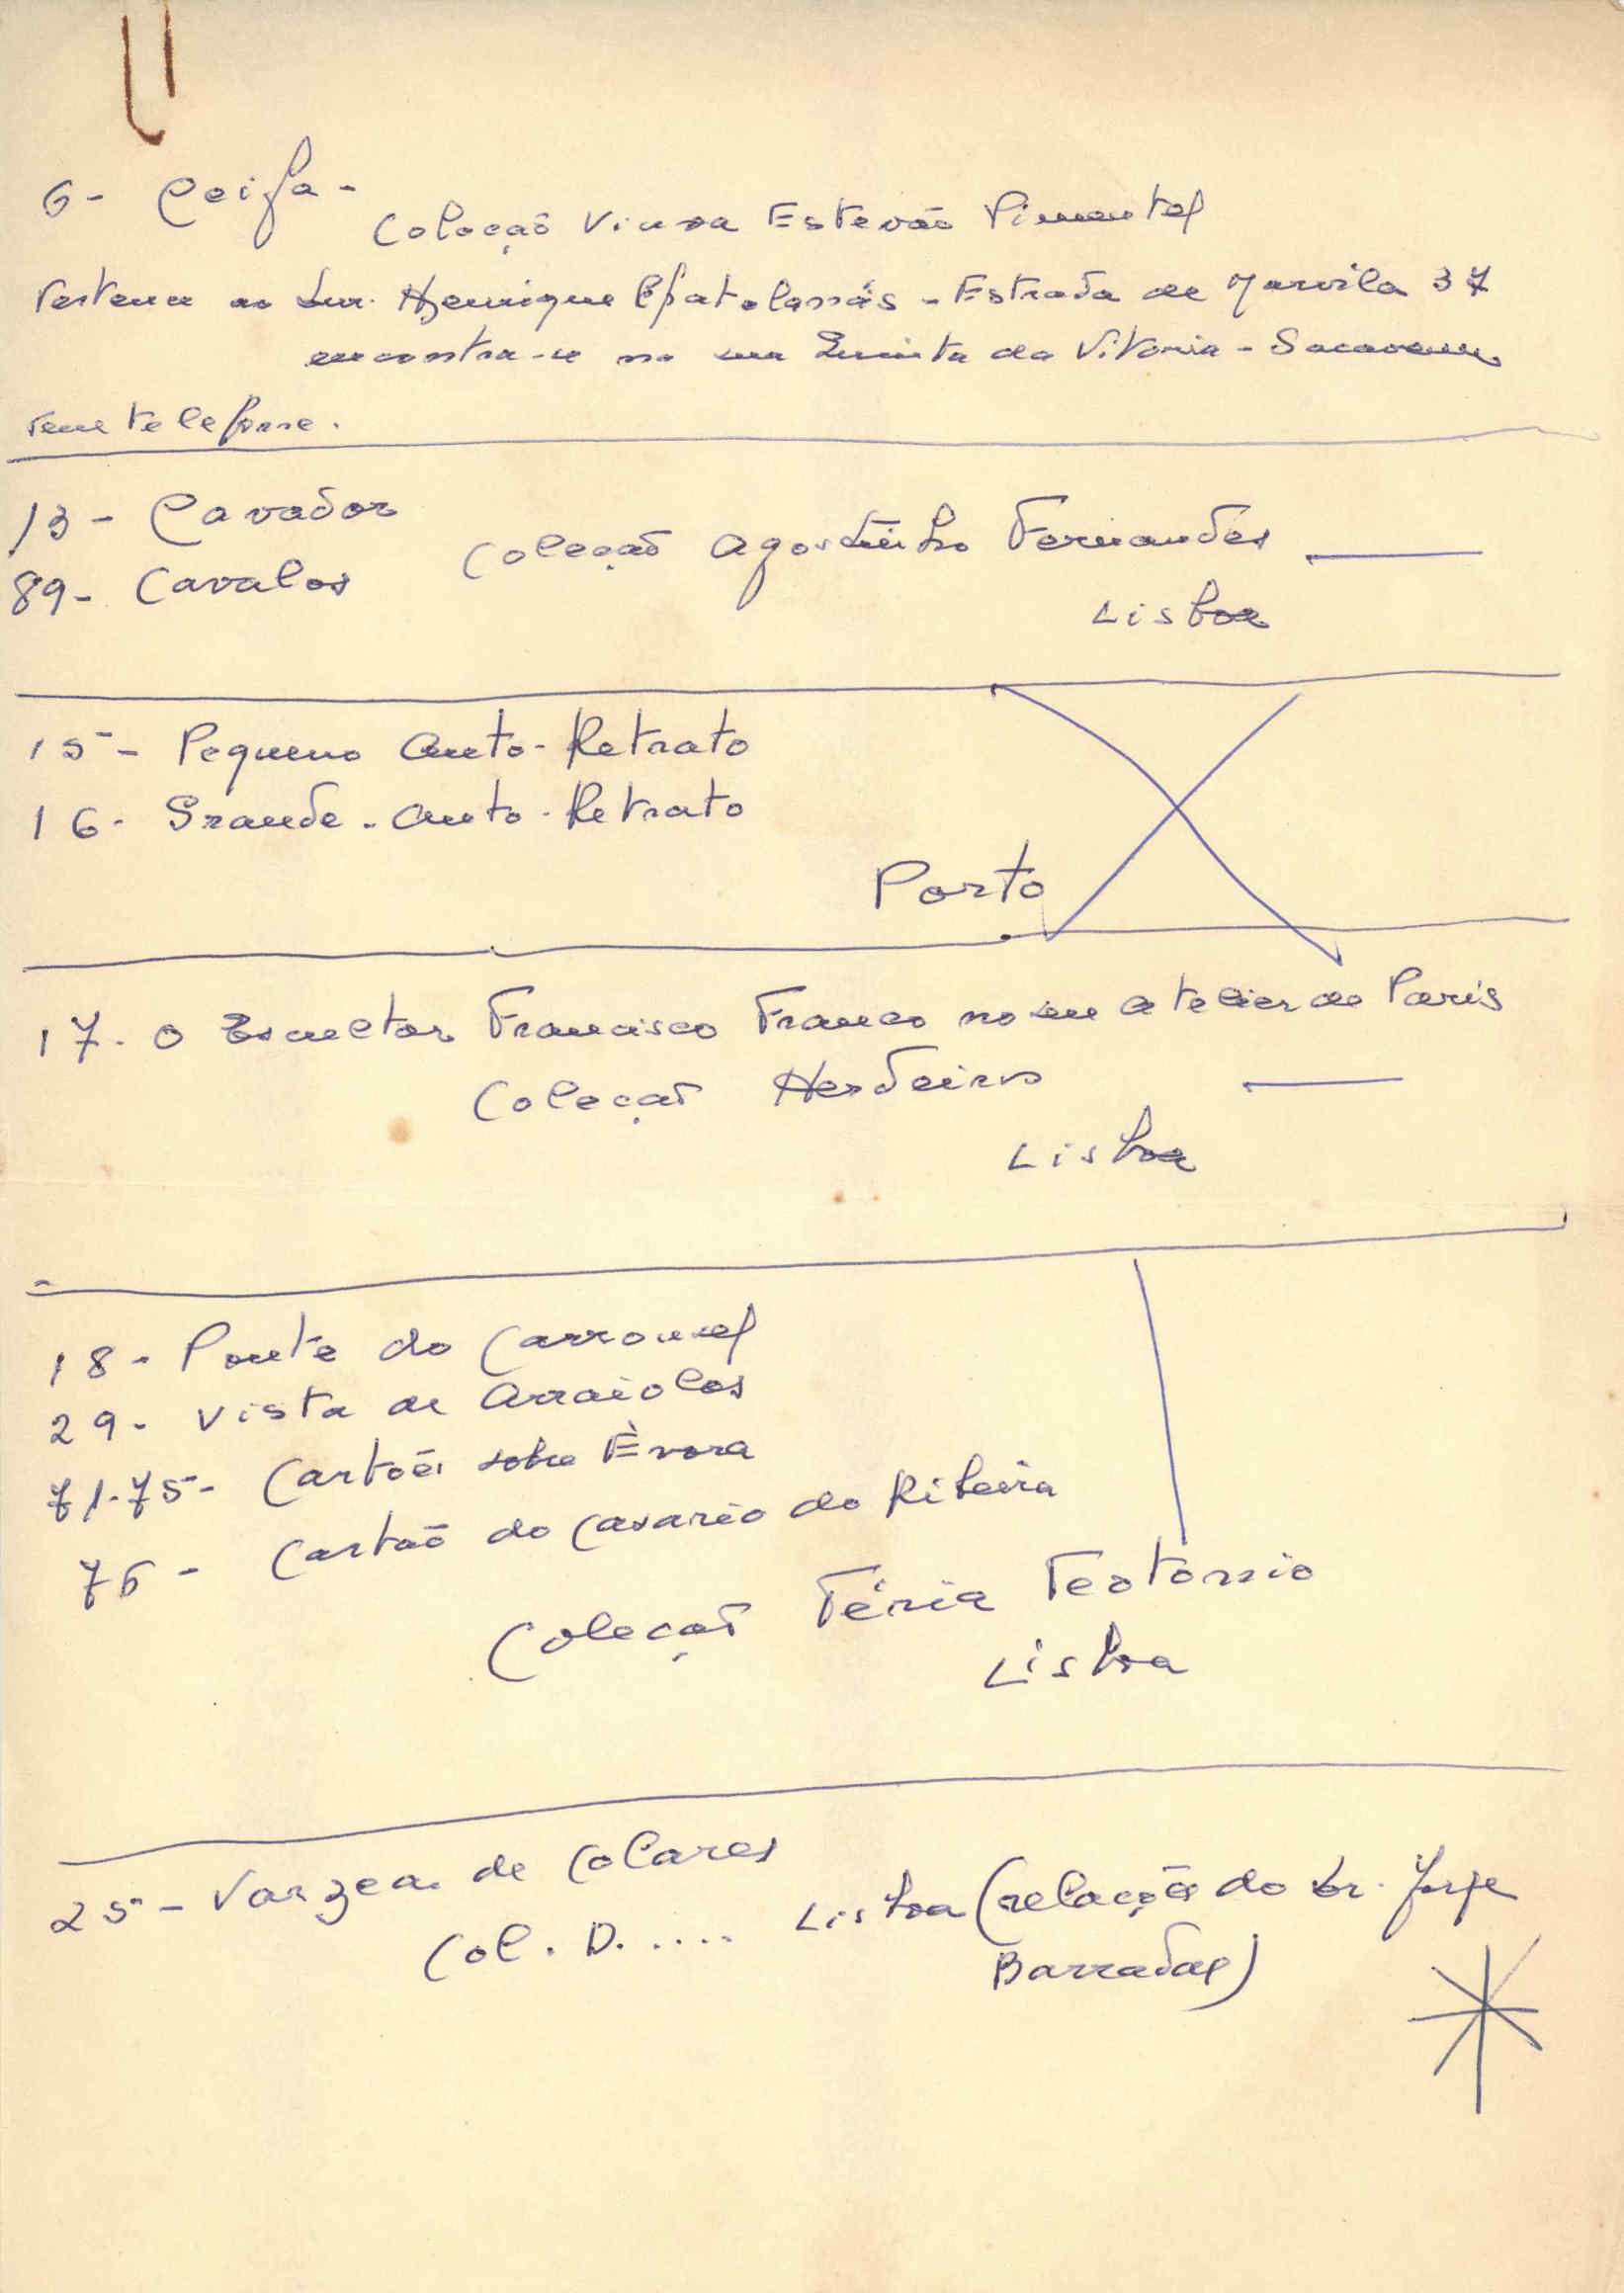 6- Ceifa-
Coleção Viuva Estevão Pimentel
Pertence ao Snr. Henrique - Estrada de Marvila 37
encontra-se na sua Quinta da Vitoria - Sacavem
tem telefone.
13- Cavador
Coleção Agostinho Fernandes
89- Cavalos
Lisboa
15- Pequeno Auto-Retrato
16- Grande-Auto-Retrato
Porto
17- O Escultor Francisco Franco no seu atelier de Paris
Coleção Herdeiros
Lisboa
18- Ponte do Carrousel
29- Vista de Arraiolos
71-75- Cartões sobre Èvora
76- Cartão do Casario da Ribeira
Coleção Féria Teotonio
Lisboa
25- Varzea de Colares
Col. D. .... Lisboa (relações do Sr. Jorge
Barradas)